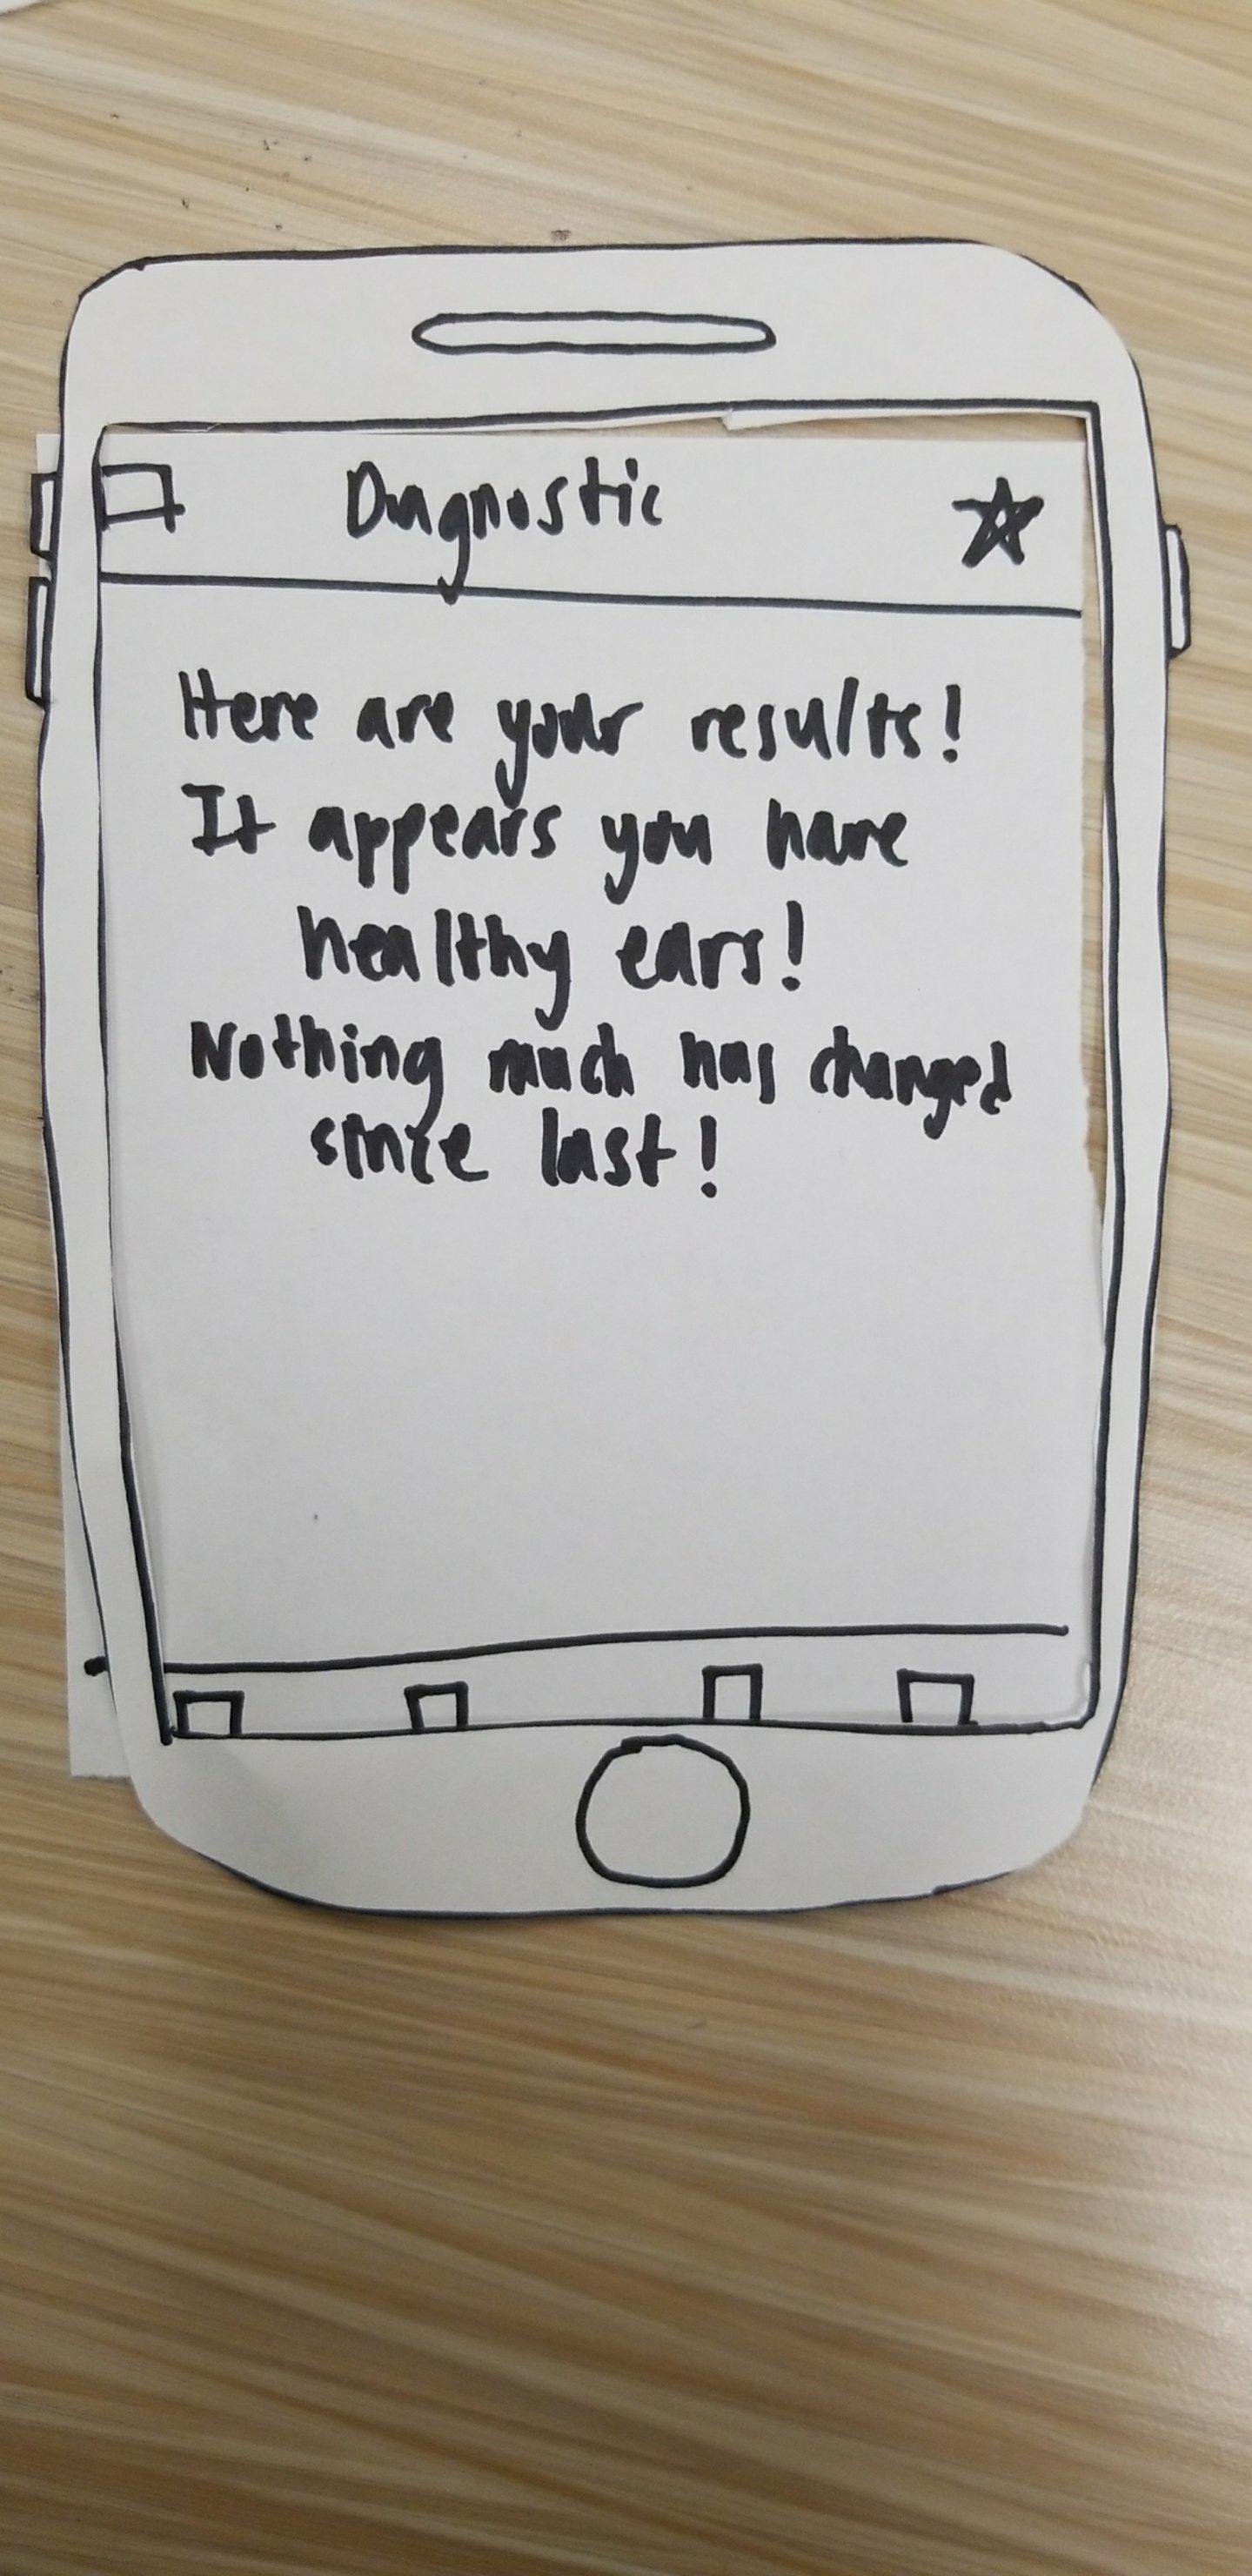 Diagnostic
Here are your results!
It appears you have
healthy ears!
Nothing much has changed
since last!